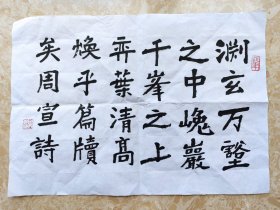 渊玄万壑
之中峗巖
千峯之上
弈葉清高
煥乎篇牘
矣周宣詩